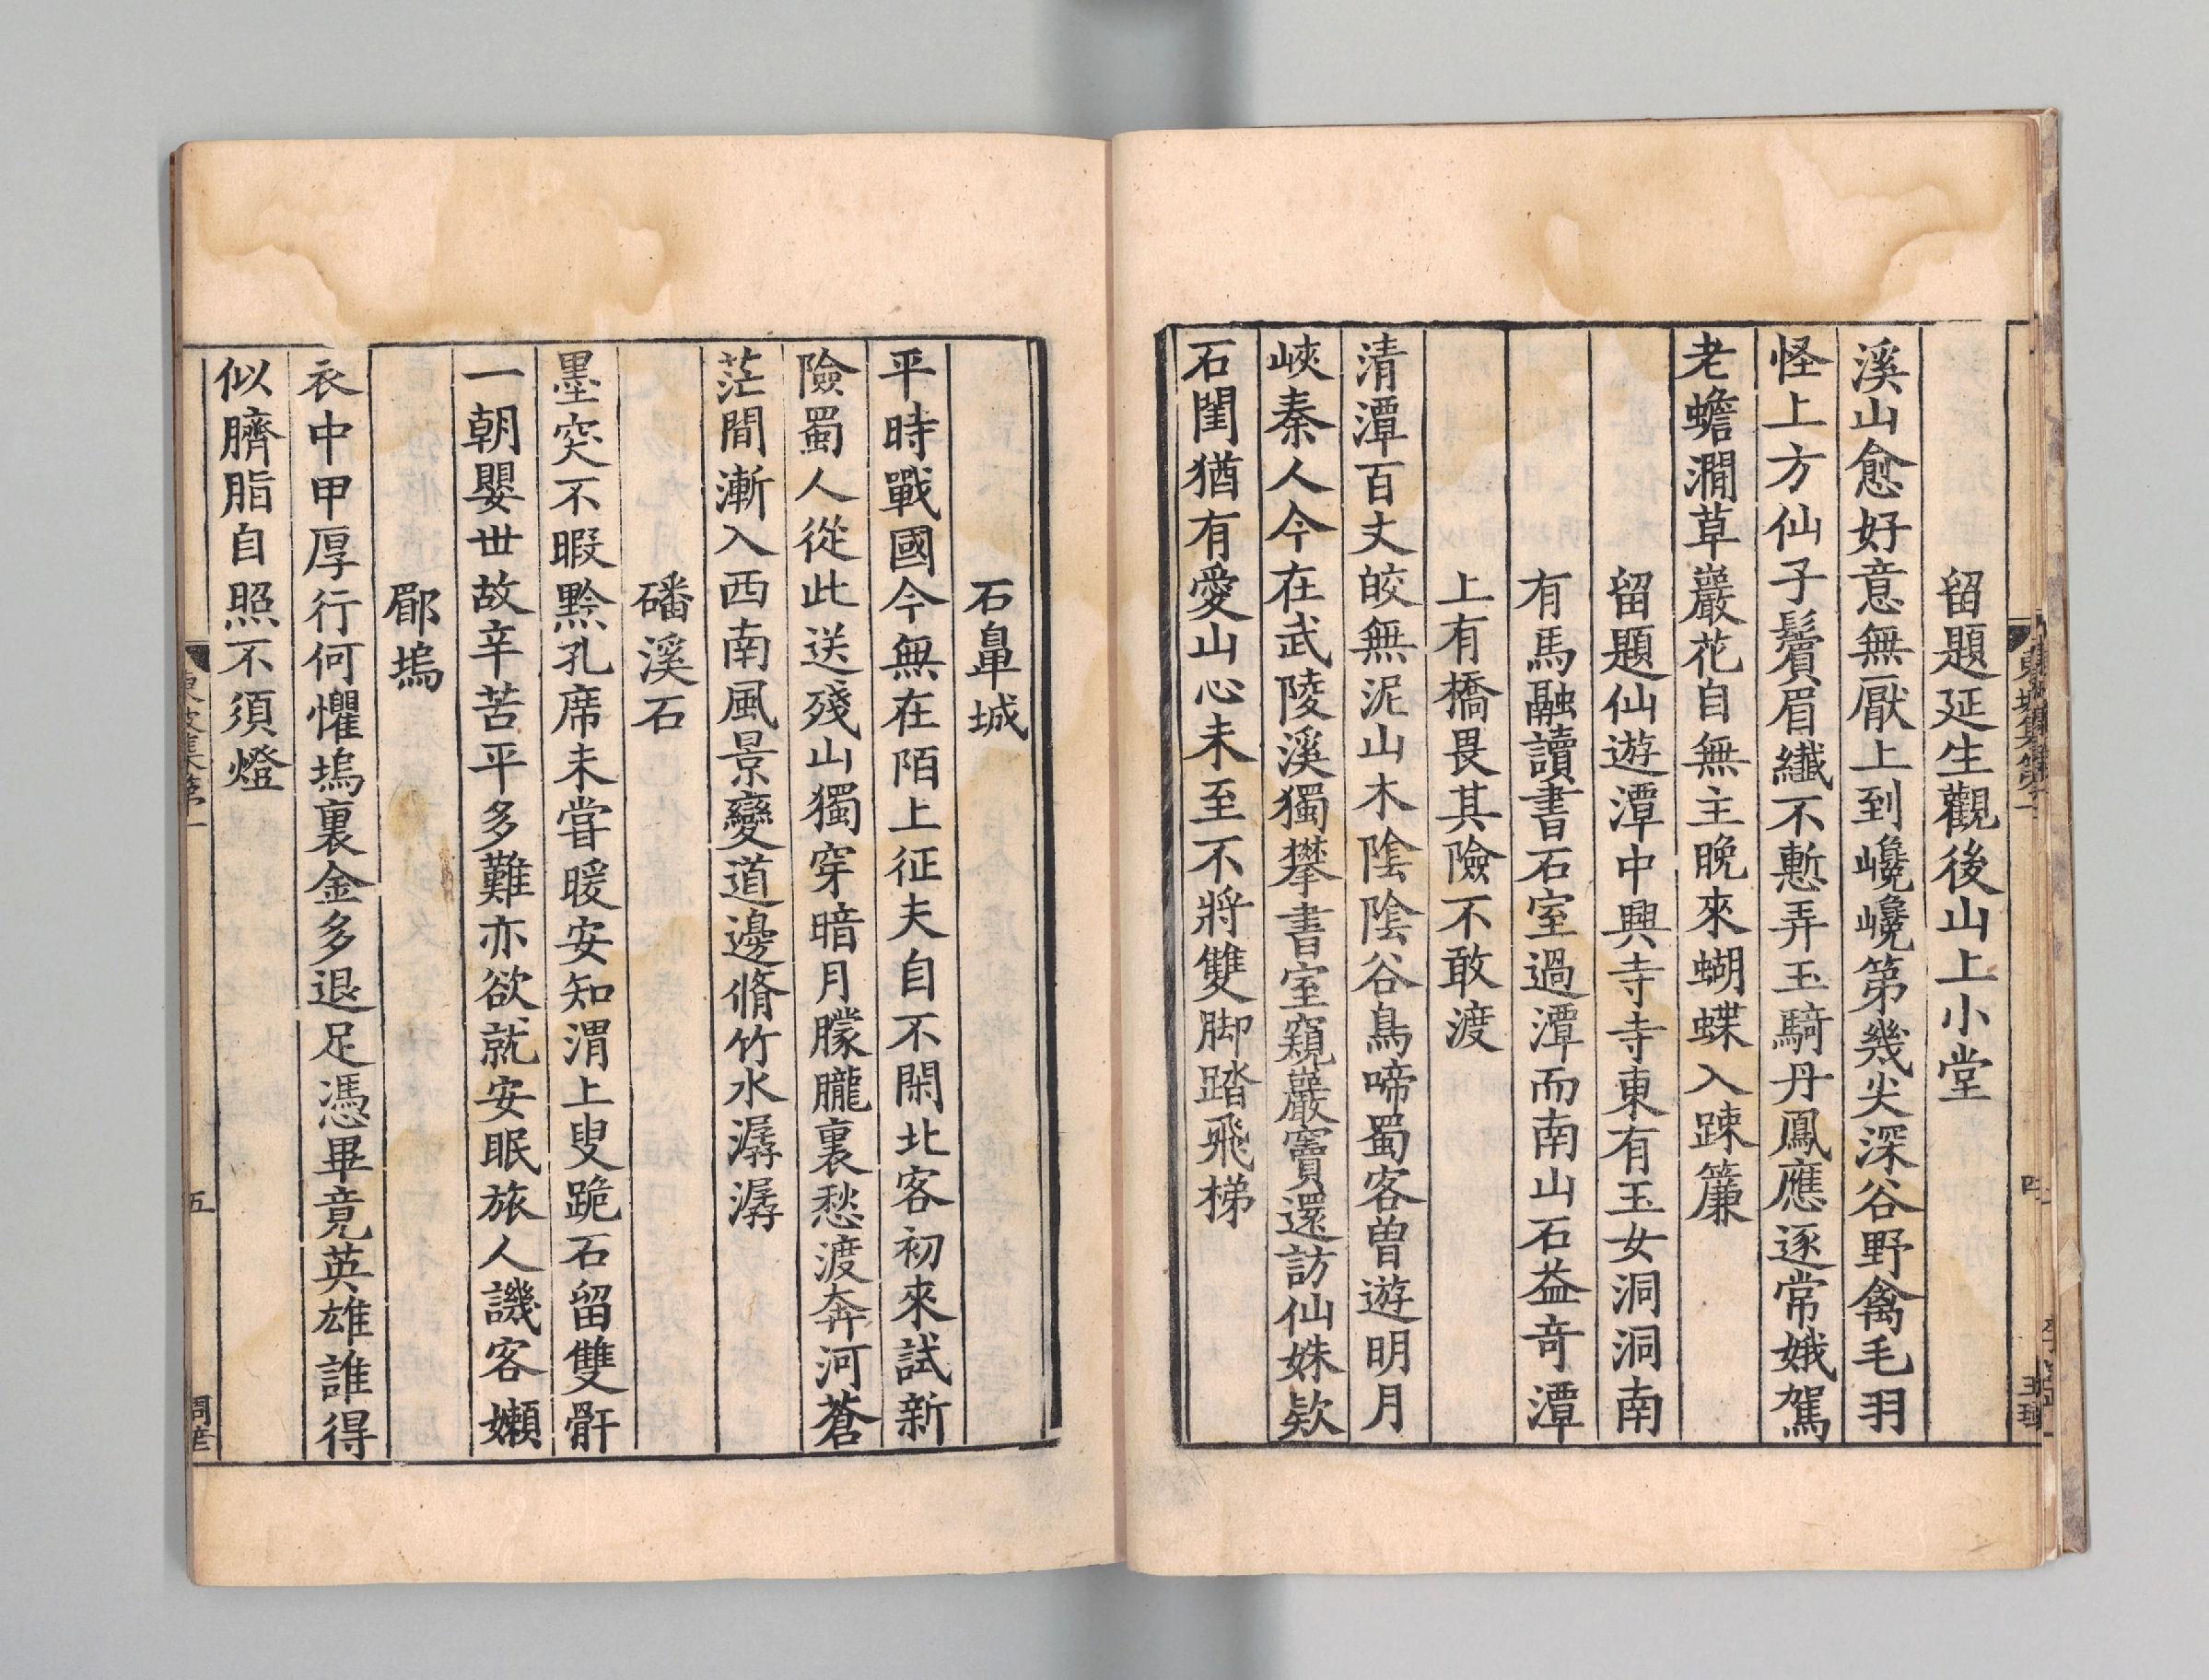 留題延生觀後山上小堂
溪山愈好意無厭上到巉巉第幾尖深谷野禽毛羽
怪上方仙子鬢眉纖不慙弄玉騎丹鳳應逐常娥駕
老蟾澗草巖花自無主晚來蝴蝶入踈簾
留題仙遊潭中興寺寺東有玉女洞洞南
有馬融讀書石室過潭而南山石益奇潭
上有橋畏其險不敢渡
清潭百丈皎無泥山木陰陰谷鳥啼蜀客曾遊明月
峽秦人今在武陵溪獨攀書室窺巖竇還訪仙姝欵
石閨猶有愛山心未至不將雙脚踏飛梯
石鼻城
平時戰國今無在陌上征夫自不閑北客初來試新
險蜀人從此送殘山獨穿暗月朦朧裏愁渡奔河蒼
茫間漸入西南風景變道邊脩竹水潺潺
磻溪石
墨突不暇黔孔席未甞暖安知渭上叟跪石留雙骭
一朝嬰世故辛苦平多難亦欲就安眠旅人譏客嬾
郿塢
衣中甲厚行何懼塢裏金多退足憑畢竟英雄誰得
似臍脂自照不須燈
五